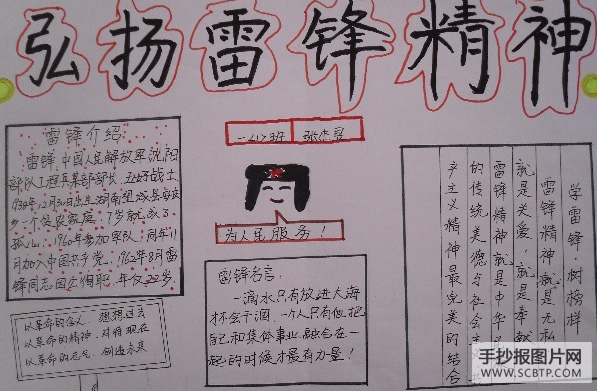 弘扬雷锋精神
雷锋介绍
雷锋,中国人民解放军沈阳
部队工程兵某部部长、五好战士
1940年12月30日出生湖南望城县安庆
乡一个贫农家庭。7岁就成了
孤儿。1960年参加军队,同年11
月加入中国共产党。1962年8月雷
锋同志因公殉职,年仅22岁
以革命的名义,想想过去
以革命的精神,对待现在
以革命的志气,创造未来
班 张杰
为人民服务!
雷锋名言:
一滴水只有放进大海
才不会干涸,一个人只有他把
自己和集体事业融合在一
起的时候才最有力量!
学雷锋,树榜样
雷锋精神就是无私
就是关爱 就是奉献
雷锋精神就是中华
的传统美德与社会主
产主义精神最完美的结合
手抄报图片网
www.SCBTP.com